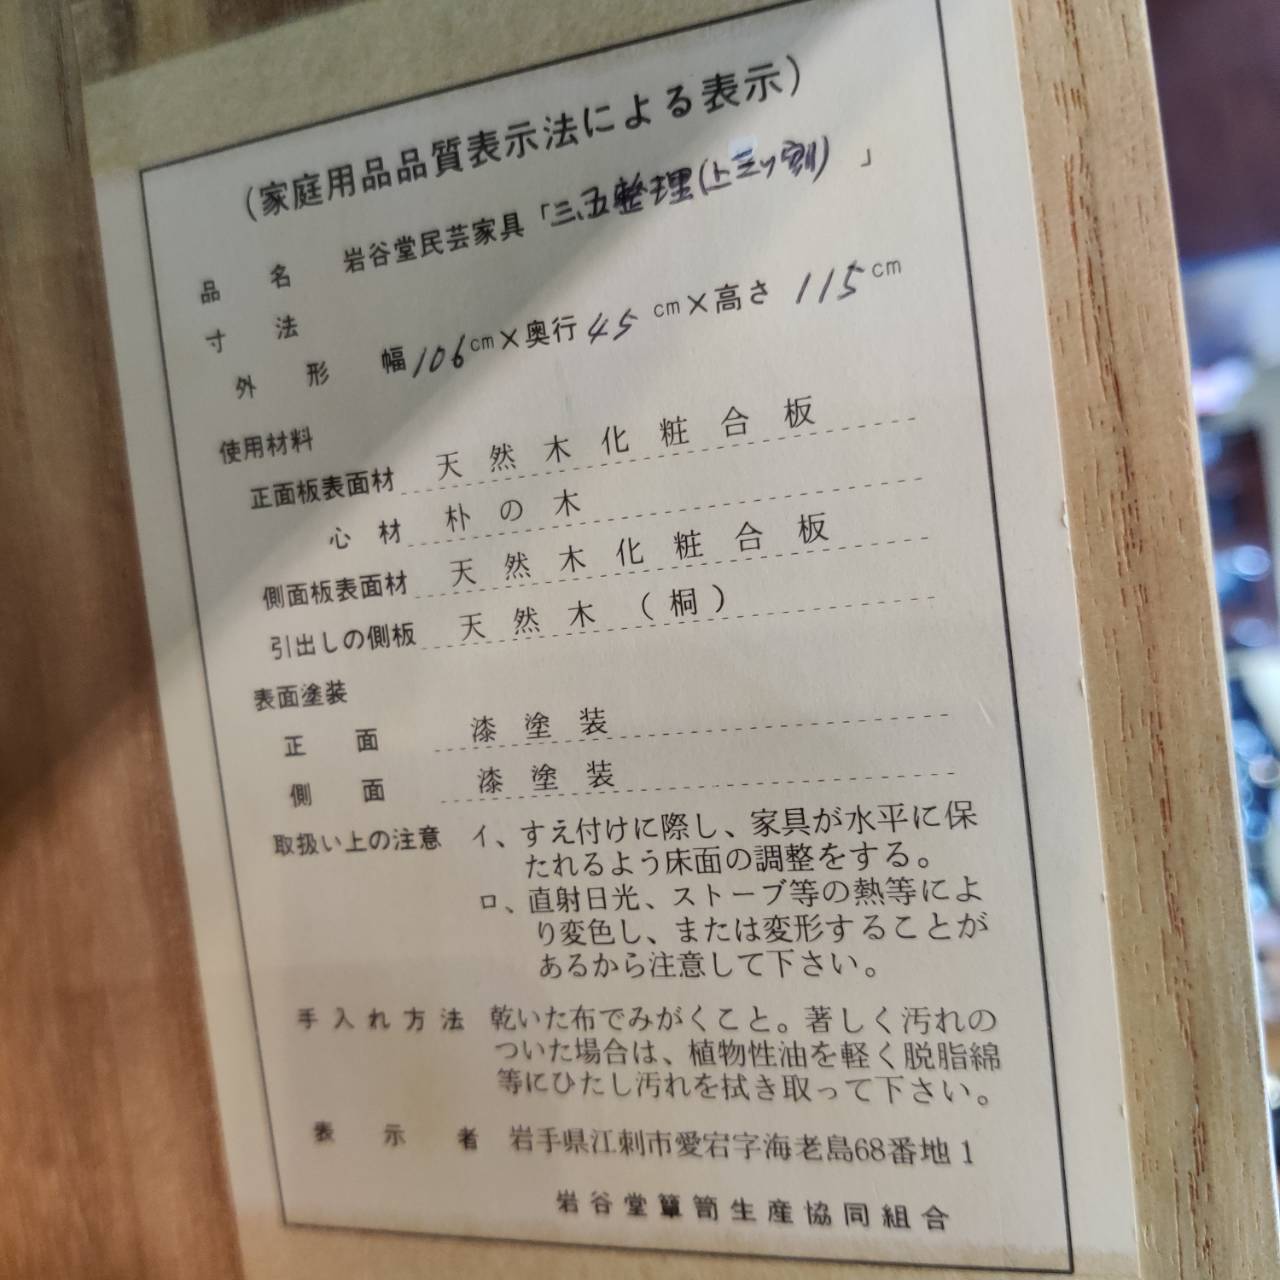 （家庭用品品質表示法による表示）
品名 岩谷堂民芸家具「三、五整理(上三ッ割)」
寸法
外形 幅106cm×奥行45cm×高さ115cm
使用材料
正面板表面材 天然木化粧合板
心材 朴の木
側面板表面材 天然木化粧合板
引出しの側板 天然木（桐）
表面塗装
正面 漆塗装
側面 漆塗装
取扱い上の注意 イ、すえ付けに際し、家具が水平に保
たれるよう床面の調整をする。
ロ、直射日光、ストーブ等の熱等によ
り変色し、または変形することが
あるから注意して下さい。
手入れ方法 乾いた布でみがくこと。著しく汚れの
ついた場合は、植物性油を軽く脱脂綿
等にひたし汚れを拭き取って下さい。
表示者 岩手県江刺市愛宕字海老島68番地1
岩谷堂簞笥生産協同組合